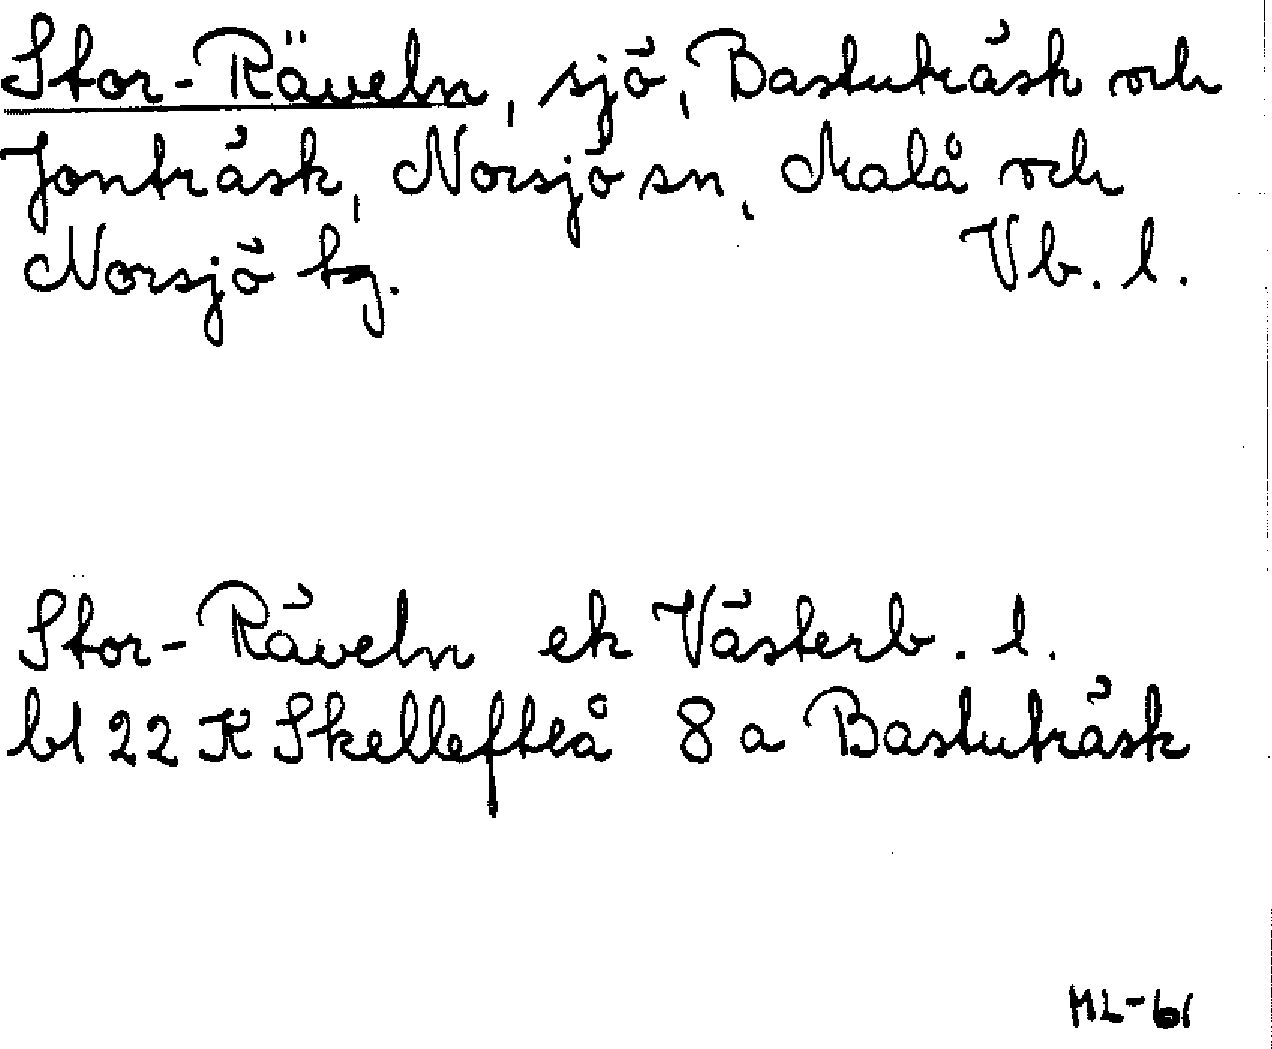 Stor-Räveln, sjö, Bastuträsk och
Jonträsk, Norsjö sn, Malå och
Norsjö tg. Vb. l.
Stor-Räveln ek Västerb. l.
bl 22 K Skellefteå 8 a Bastuträsk
ML-61